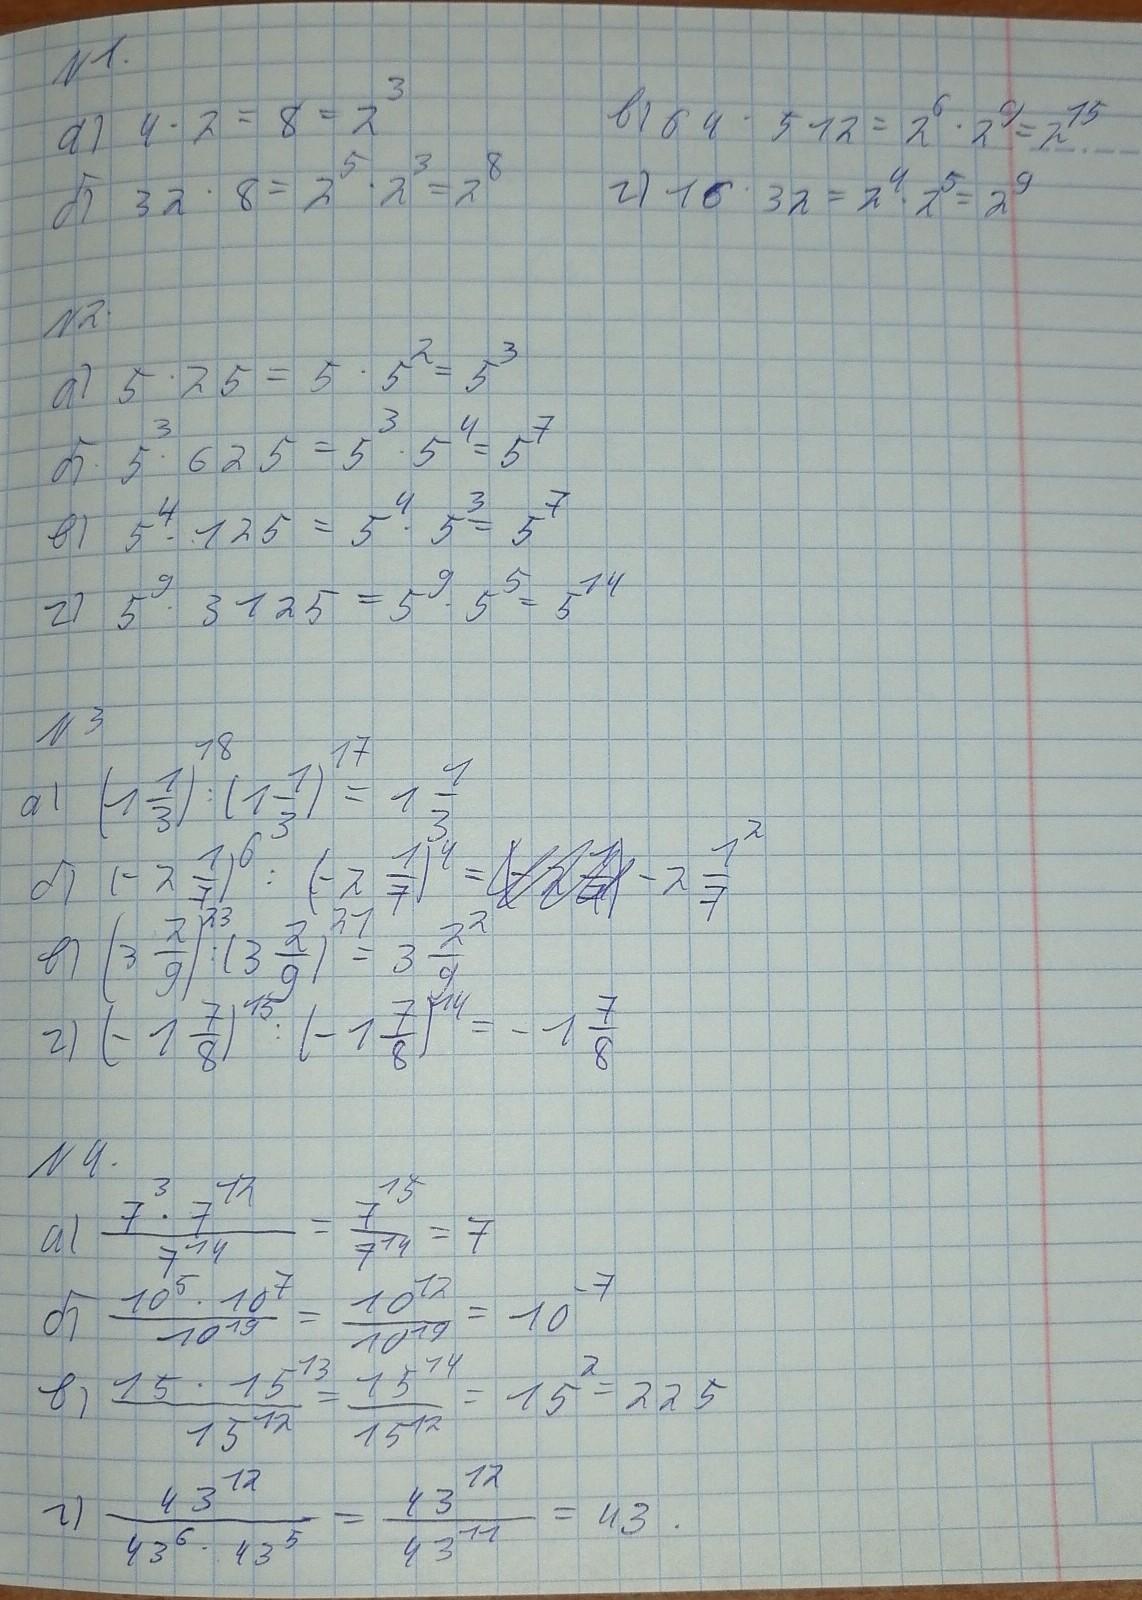 N1.
а) 4 · 2 = 8 = 2³
б) 32 · 8 = 2⁵ · 2³ = 2⁸
в) 64 · 512 = 2⁶ · 2⁹ = 2¹⁵
г) 16 · 32 = 2⁴ · 2⁵ = 2⁹
N2.
а) 5 · 25 = 5 · 5² = 5³
б) 5³ · 625 = 5³ · 5⁴ = 5⁷
в) 5⁴ · 125 = 5⁴ · 5³ = 5⁷
г) 5⁹ · 3125 = 5⁹ · 5⁵ = 5¹⁴
N3
а) (1 1/3)¹⁸ : (1 1/3)¹⁷ = 1 1/3
б) (-2 1/7)⁶ : (-2 1/7)⁴ = -2 1/7²
в) (3 2/9)²³ : (3 2/9)²¹ = 3 2/9²
г) (-1 7/8)¹⁵ : (-1 7/8)¹⁴ = -1 7/8
N4.
а) 7³ · 7¹² / 7¹⁴ = 7¹⁵ / 7¹⁴ = 7
б) 10⁵ · 10⁷ / 10¹⁹ = 10¹² / 10¹⁹ = 10⁻⁷
в) 15 · 15¹³ / 15¹² = 15¹⁴ / 15¹² = 15² = 225
г) 43¹² / 43⁶ · 43⁵ = 43¹² / 43¹¹ = 43.